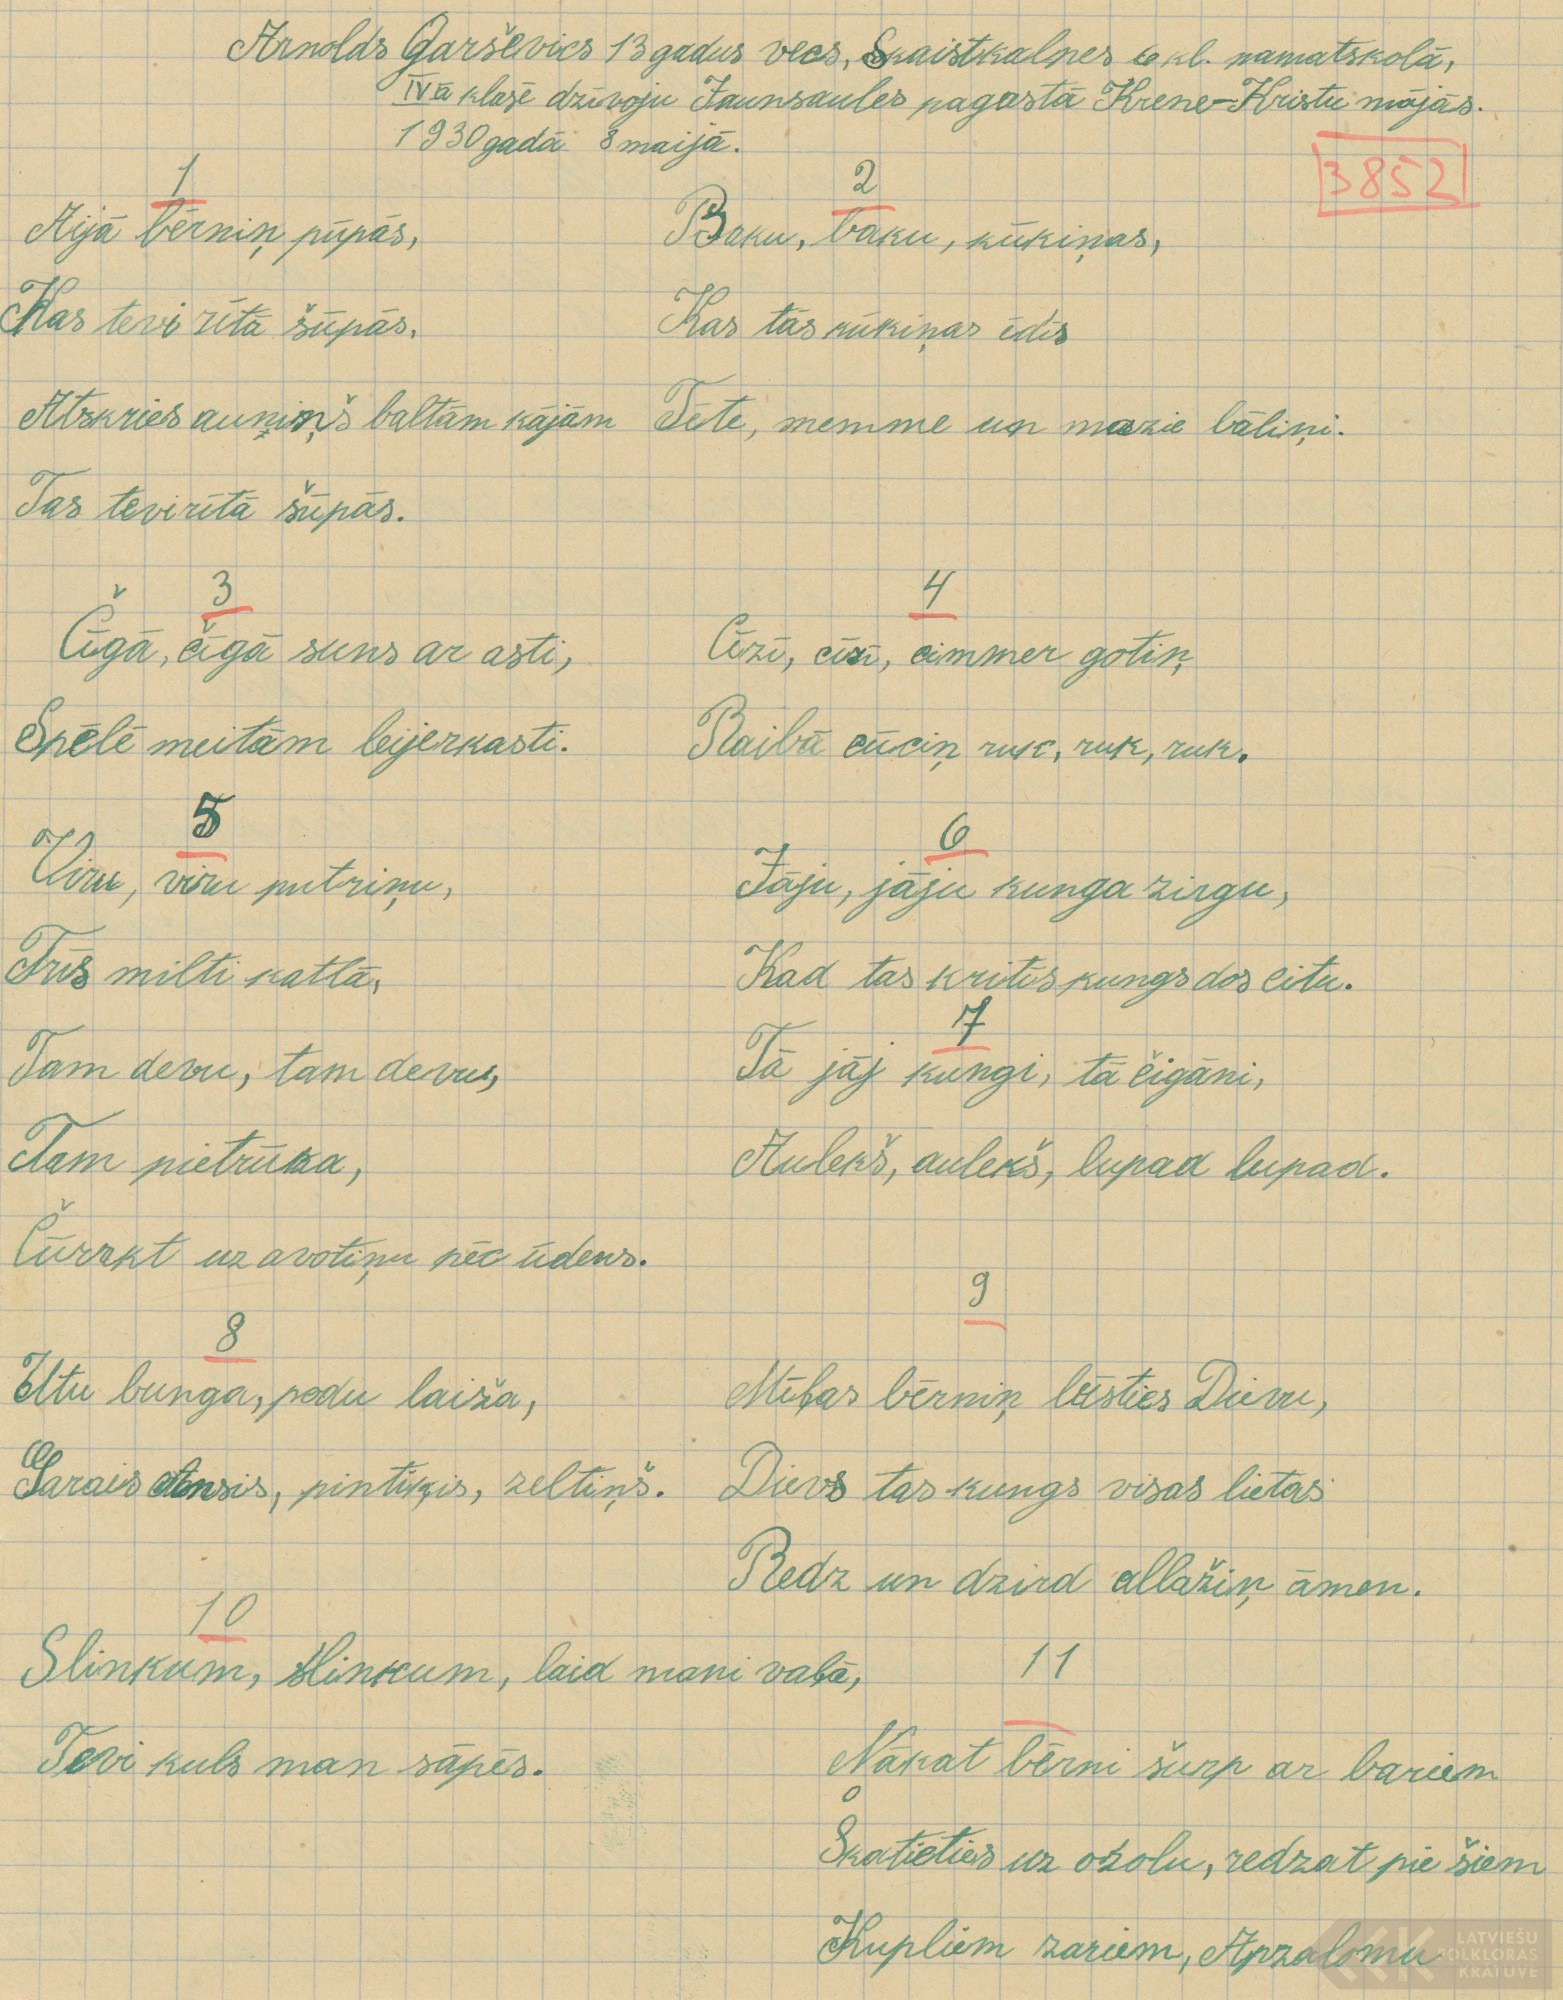 Arnolds Garševics 13 gadus vecs, Skaistkalnes 6 kl. pamatskolā,
IVā klasē dzīvoju Jaunsaules pagastā Krene-Kristu mājās.
1930 gadā 8 maijā.
3852
1
Aijā bērniņ pūpās,
Kas tevi rītā šūpās,
Atskries auniņš baltām kājām
Tas tevi rītā šūpās.
2
Baku, baku, kūkiņas,
Kas tās kūkiņas ēdīs
Tēte, memme un mazie bāliņi.
3
Čīgā, čīgā suns ar asti,
Spēlē meitām leijerkasti.
4
Cīzī, cīzī, cimmer gotiņ
Raibā cūciņ ruk, ruk, ruk.
5
Viru, viru putriņu,
Trīs milti katlā,
Tam devu, tam devu,
Tam pietrūka,
Čūrzkt uz avotiņu pēc ūdens.
6
Jāju, jāju kunga zirgu,
Kad tas kritīs kungs dos citu.
7
Tā jāj kungi, tā čigāni,
Aulekš, aulekš, lupad lupad.
8
Utu bunga, podu laiža,
Garais, pintiķis, zeltiņš.
9
Mīļas bērniņ bīsties Dievu,
Dievs tas kungs visas lietas
Redz un dzird allažiņ āmen.
10
Slinkum, slinkum, laid mani vaļā,
Tevi kuls man sāpēs.
11
Nākat bērni šurp ar bariem
Skatieties uz ozolu, redzat pie šiem
Kupliem zariem, Apzalomu
LATVIEŠU
FOLKLORAS
KRĀTUVE